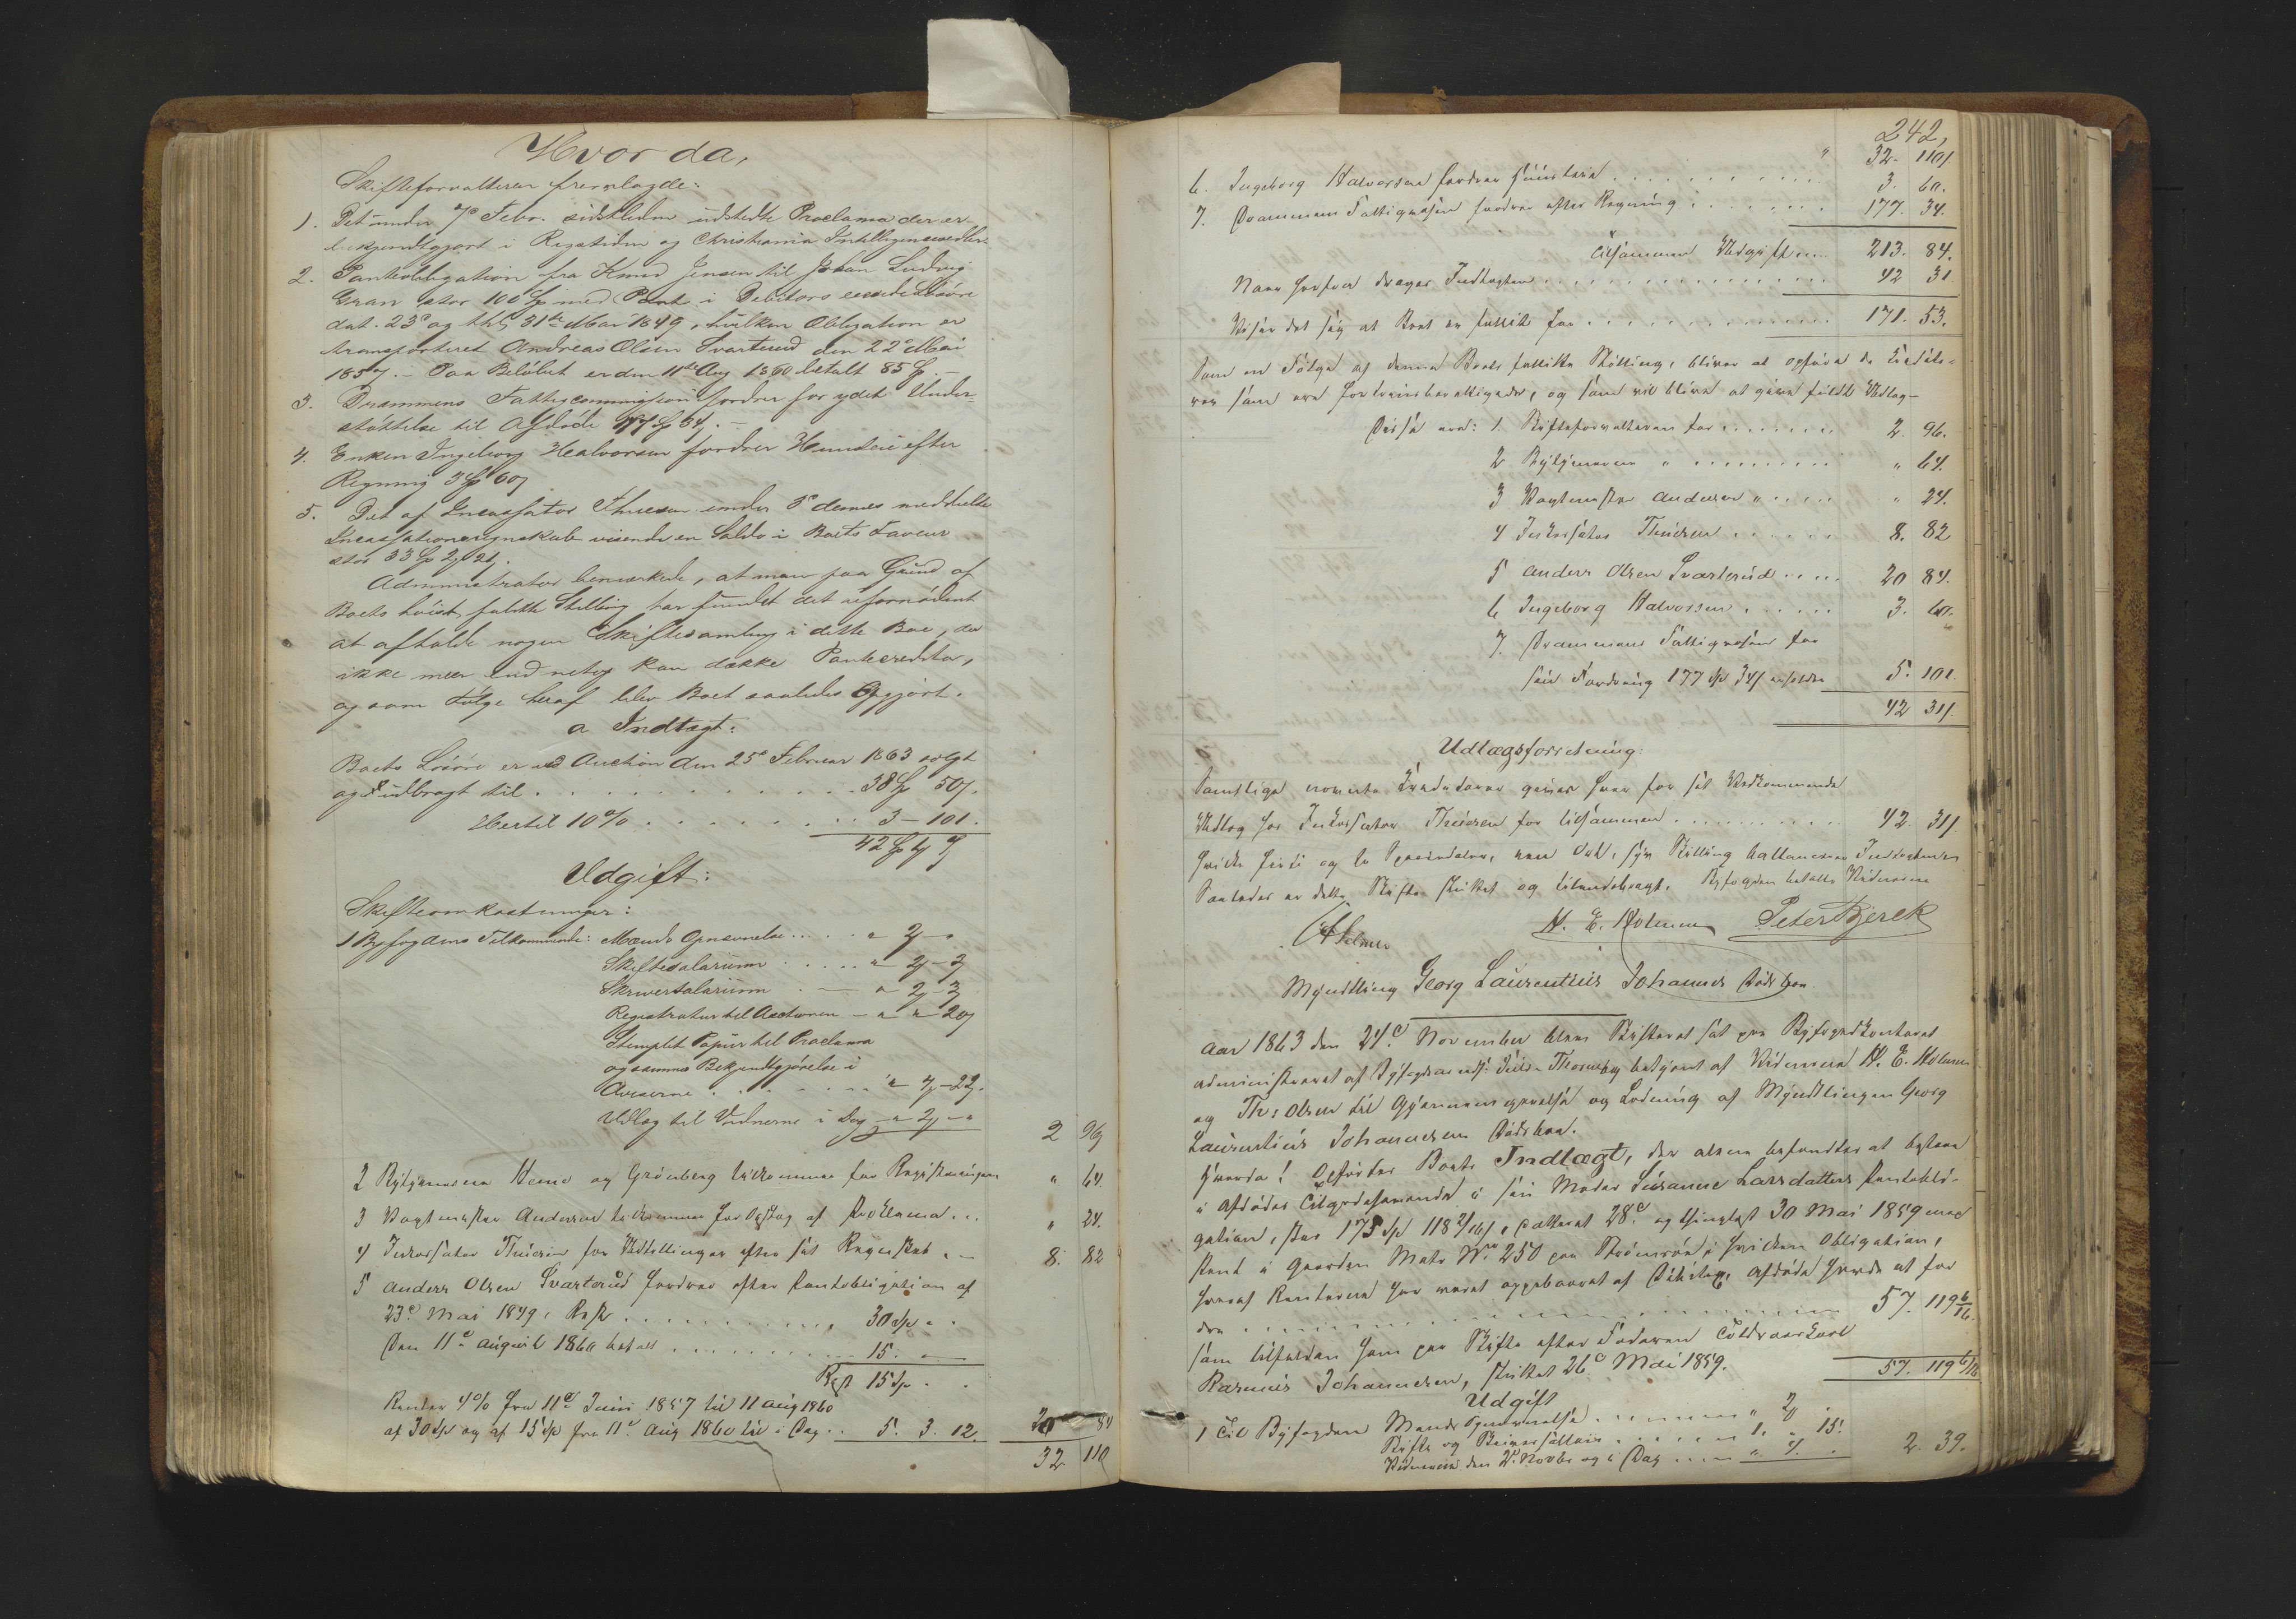 Hvor da,
Skifteforvalteren fremlagde:
1. Det under 7de Febr. sidstleden udstedte Proclama der er
bekjendtgjort i Rigstidn og Christiania Intelligenssedler
2. Pantobligation fra Knud Jensen til Johan Ludvig
Gran stor 100 Sp med Pant i Debitors
dat. 23de og thl. 31te Mai 1849, hvilken Obligation er
transporteret Andreas Olsen Svarterud den 22de Mai
1857. – Paa Beløbet er den 11te Aug 1860 betalt 85 Sp. –
3. Drammens Fattigcommission fordrer for ydet Under-
støttelse til Afdøde 177 Sp 34
4. Enken Ingeborg Halvorsen fordrer Huusleie efter
Regning 3 Sp 60
5. Det af Incassator Thuesen under 3de dennes meddeelte
Incassationsregnskab visende en Saldo i Boets Faveur
stor 33 Sp
Administrator bemærkede, at man paa Grund af
Boets høist fallitte Stilling har fundet det ufornødent
at afholde nogen Skiftesamling i dette Boe, der
ikke meer end netop kan dække Pantcreditor,
og som Følge heraf blev Boet saaledes Opgjort.
a Indtægt:
Boets Løsøre er ved Auction den 25de Februar 1863 solgt
og udbragt til . . . . . 38 Sp 50
Hertil 10% . . . . . 3 – 101.
42 Sp
Udgift:
Skifteomkostninger:
1 Byfogdens Tilkommende: Mænds Opnævnelse . . . " 2 – "
Skiftesalarium . . . . " 2 – 3
Skriversalarium . – " 2 – 3
Registratur til Auctionen – " " 20
Stemplet Papiir til Proclama
og samme Bekjendtgjørelse i
Aviserne . . . . .
Udlæg til Vidnerne i Dag – " 2 – " 2 96
2 Byskriverne Heme og Grønberg tilkommer for Registreringen " 64.
3 Vagtmester Andersen tilkommer for Opslag af Proclama . . . " 24.
4 Inkassator Thuesen for Udtællinger efter sit Regnskab . – 8. 82
5 Anders Olsen Svarterud fordrer efter Pantobligation af
23de Mai 1849, Rest . . . . . 30 Sp " .
Den 11te August 1860 betalt . . . . . 15. "
Rest 15 Sp . .
Renter 4% fra 11te Juni 1857 til 11 Aug 1860
af 30 Sp og af 15 Sp fra 11te Aug 1860 til i Dag . . 5. 3. 12. 20 84
32 110
242,
" 32. 110
6. Ingeborg Halvorsen fordrer Huusleie . . . . . 3. 60.
7. Drammens Fattigvæsen fordrer efter Regning . . . . . 177. 34.
tilsammen Udgift . . . 213. 84.
Naar herfra drages Indtægten . . . . . 42 31
Viser det sig at Boet er fallit for . . . . . 171. 53.
Som en Følge af denne Boets fallitte Stilling, bliver at opføre de Credito-
rer som ere fortrinsberettigede, og som vil blive at give fuldt Udlæg –
Disse ere: 1. Skifteforvalteren for . . . . . 2. 96.
2 " . . . . . " 64.
3 Vagtmester Andersen " . . . . " 24.
4 Inkassator Thuesen . . . . . 8. 82
5 Anders Olsen Svarterud . . . . 20 84.
6 Ingeborg Halvorsen . . . . . 3. 60.
7. Drammens Fattigvæsen for
sin Fordring 177 Sp 34 5. 101.
42 31
Udlægsforretning:
Samtlige nævnte Creditorer gives hver for sit Vedkommende
Udlæg hos Inkassator Thuesen for tilsammen . . . . . 42. 31
hvilke firti og to Speciedaler, een Ort, syv Skilling ballancerer Indtægten
Saaledes er dette Skifte sluttet og tilendebragt. Byfogden betalte Vidnerne
H. E. Holmen Peter Bjerck
Myndtling Georg Laurentius Johannes Dødsboe.
Aar 1863 den 24de November blev Skifteret sat paa Byfogedkontoret
administreret af Byfogdens betjent af Vidnerne H. E. Holmen
og Ths Olsen til Gjennemgaaelse og Lodning af Myndtlingen Georg
Laurentius Johannesens Dødsboe.
Hvorda! Opførtes Boets Indtægt, der alene befandtes at bestaa
i Afdødes Tilgodehavende i sin Moder Susanne Larsdatters Pantobli-
gation, stor 175 Sp 118 2/16, datteret 28de og thinglæst 30 Mai 1859 med
Pant i Gaarden Matr No 250 paa Strømsøe, hvilken Obligation,
hvoraf Renterne har været oppebaaret af Afdøde havde at for
dre . . . . . 57. 119 6/16.
som tilfalden ham paa Skifte efter Faderen Toldroerkarl
Rasmus Johannesen, sluttet 26de Mai 1859. 57. 119 6/16
Udgift
1 Til Byfogden Mænds Opnævnelse . . . . . " 2 .
Skifte og Skriversallair . . . . . 1. " 15.
Vidnerne den 2. Novbr og i Dag . . . . " 4. " 2. 39.